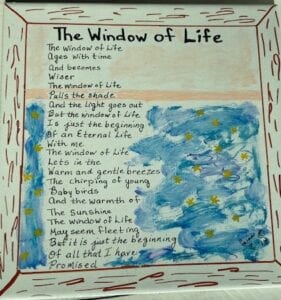 The Window of Life
The Window of Life
Ages with time
And becomes
Wiser
The Window of Life
Pulls the shade
And the Light goes out
But the Window of Life
Is just the beginning
Of an Eternal Life
With me
The Window of Life
Lets in the
Warm and gentle breezes
The chirping of young
Baby birds
And the warmth of
The Sunshine
The Window of Life
May seem fleeting
But it is just the beginning
Of all that I have
Promised